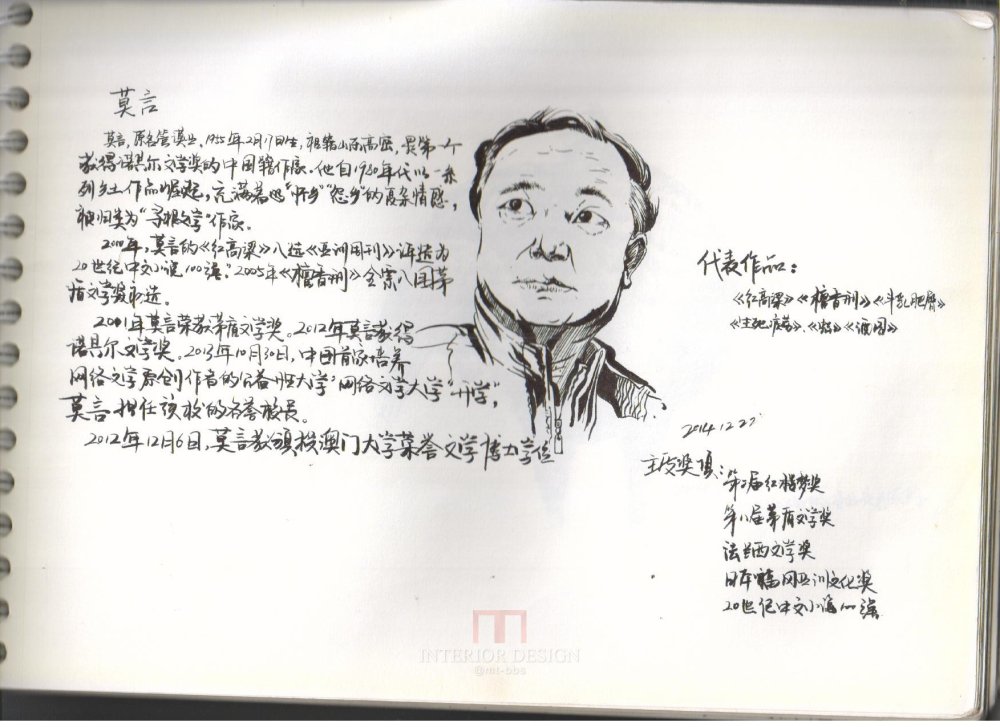 莫言
莫言,原名管谟业,1955年2月17日生,祖籍山东高密,是第一个
获得诺贝尔文学奖的中国籍作家。他自1980年代以一系
列乡土作品崛起,充满着"怀乡""怨乡"的复杂情感,
被归类为"寻根文学"作家。
2000年,莫言的《红高粱》入选《亚洲周刊》评选为
20世纪中文小说100强。2005年《檀香刑》全票入围茅
盾文学奖初选。
2011年莫言荣获茅盾文学奖。2012年莫言获得
诺贝尔文学奖。2013年10月30日,中国首家培养
网络文学原创作者的公益型大学"网络文学大学"开学,
莫言担任该校的名誉校长。
2012年12月6日,莫言被颁授澳门大学荣誉文学博士学位
代表作品:
《红高粱》《檀香刑》《丰乳肥臀》
《生死疲劳》、《蛙》《酒国》
2014.12.27
主要奖项:
第2届红楼梦奖
第八届茅盾文学奖
法兰西文学奖
日本福冈亚洲文化奖
20世纪中文小说100强
INTERIOR DESIGN
@mt-bbs